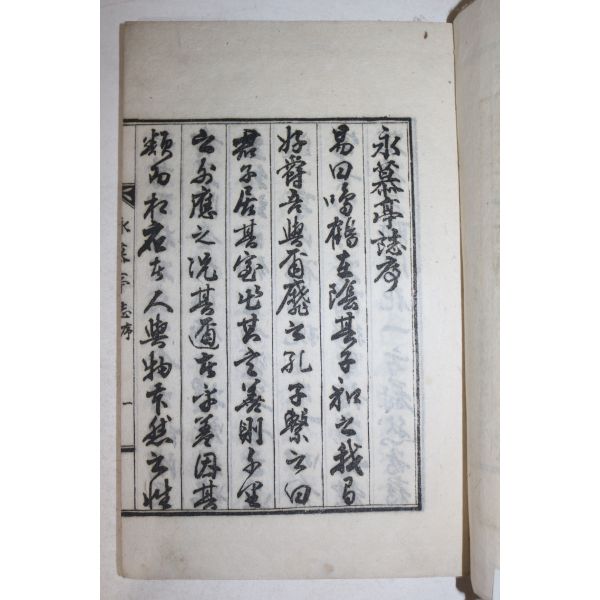 永慕亭誌序
易曰鳴鶴在陰其子和之我有
好爵吾與爾靡之孔子繫之曰
君子居其室出其言善則千里
之外應之况其邇者乎盖因其
類而相召者人與物皆然之性
永慕亭誌序 一